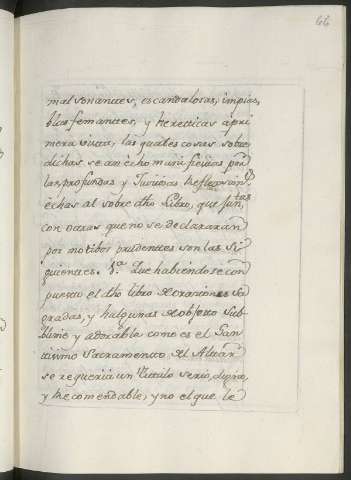 66
mal sonantes, escandalosas, impias,
blasfemantes, y hereticas á pri
mera vista, las quales cosas sobre
dichas se an echo manifiestas por
las profundas y Juisiosas Reflexion.s
echas al sobre dho Libro, que jun
tas
con otras que no se declararán
por motibos prudentes son las si
guientes. 1.a Que habiendose com
puesto el dho libro de oraciones Sa
gradas, y halgunas de objetto Sub
blime y adorable como es el San
tisimo Sacramento del Altar
se requeria un Titulo serio, digno,
y Recomendable, y no el que le